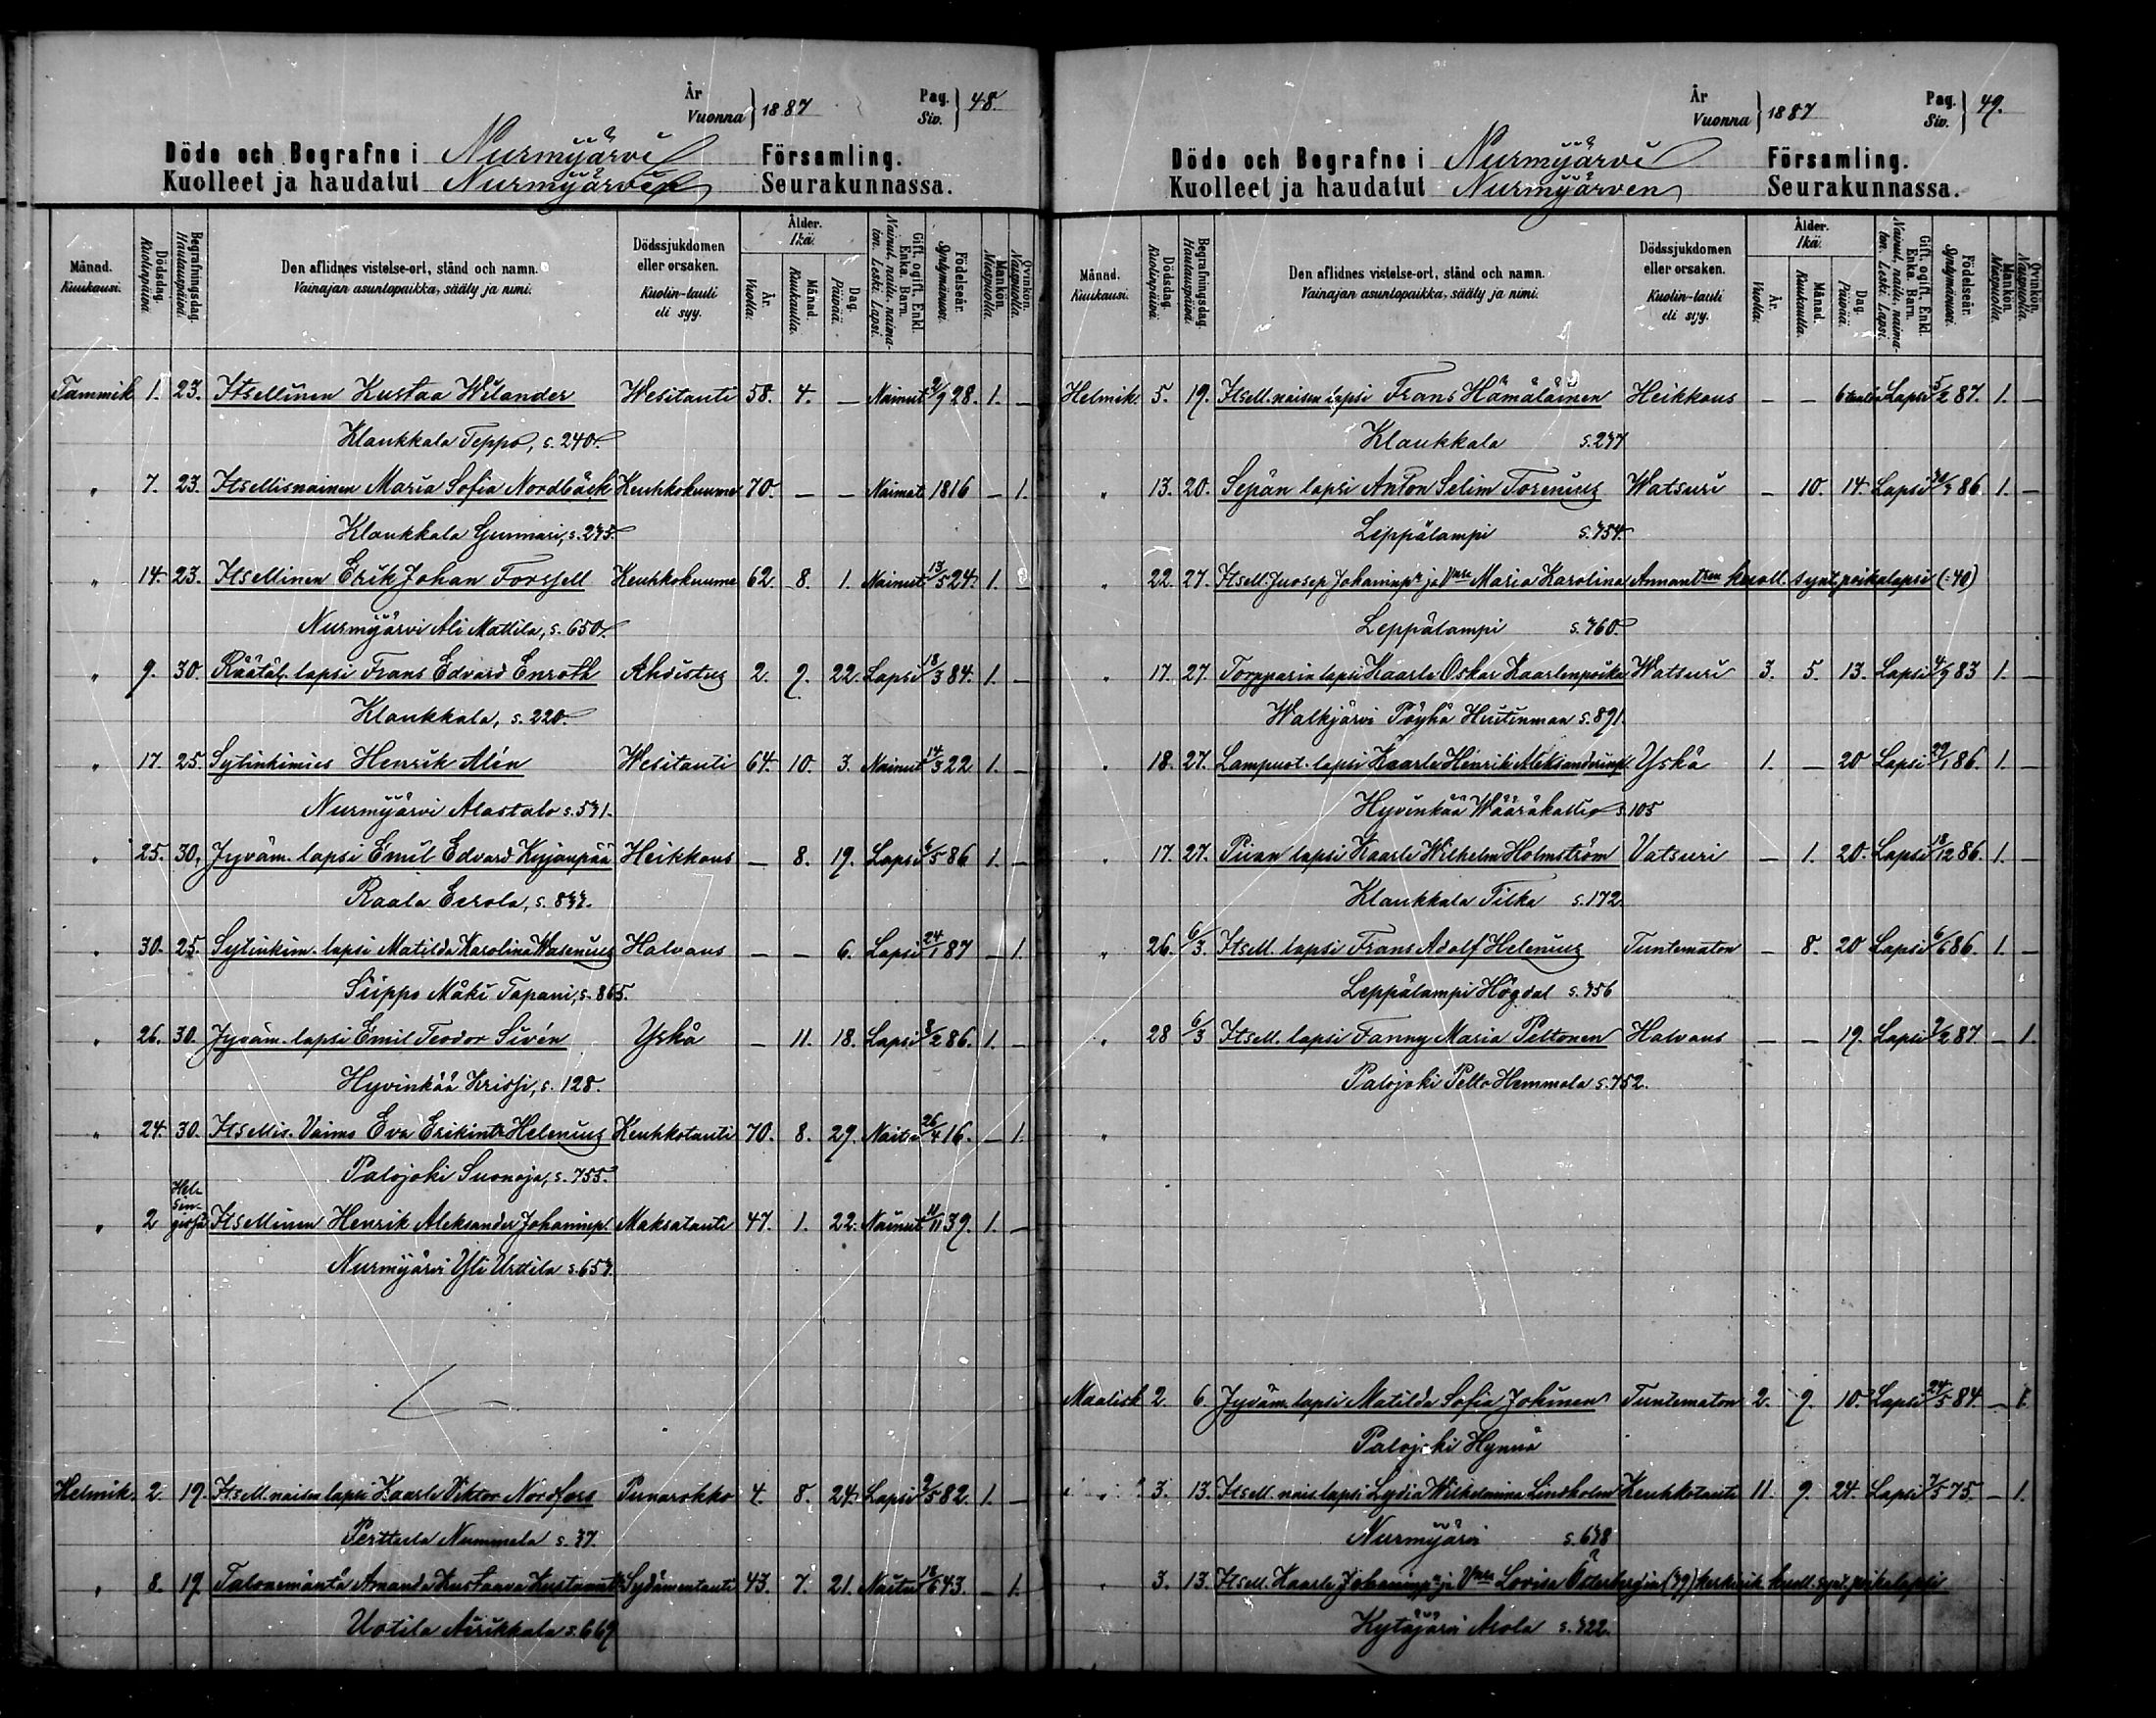 År
Vuonna } 1887
Pag.
Siv. } 48.
Döde och Begrafne i Nurmijärvi Församling.
Kuolleet ja haudatut Nurmijärven Seurakunnassa.
Månad. Kuukausi.
Dödsdag. Kuolinpäivä.
Begrafningsdag. Hautauspäivä.
Den aflidnes vistelse-ort, stånd och namn.
Vainajan asuntopaikka, sääty ja nimi.
Dödssjukdomen eller orsaken.
Kuolin-tauti eli syy.
Ålder. Ikä.
År. Vuotta.
Månad. Kuukautta.
Dag. Päivää.
Gift, ogift, Enkl. Enka. Barn.
Nainut, naitu, naimaton. Leski. Lapsi.
Födelseår. Syntymävuosi.
Mankön. Miespuolia.
Qvinkön. Naispuolia.
Tammik 1. 23. Itsellinen Kustaa Wilander Wesitauti 58. 4. — Nainut 2/9 28. 1. —
Klaukkala Teppo, s. 240.
" 7. 23. Itsellisnainen Maria Sofia Nordbäck Keuhkokuume 70. — — Naimat 1816 — 1.
Klaukkala Gunnari, s. 275.
" 14. 23. Itsellinen Erik Johan Forssell Keuhkokuume 62. 8. 1. Nainut 13/5 24. 1. —
Nurmijärvi Ali Mattila, s. 650.
" 9. 30. Räätäl. lapsi Frans Edvard Enroth Ahdistus 2. 9. 22. Lapsi 18/3 84. 1. —
Klaukkala, s. 220.
" 17. 25. Sytinkimies Henrik Alén Wesitauti 64. 10. 3. Nainut 14/3 22 1. —
Nurmijärvi Alastalo s. 571.
" 25. 30. Jyväm. lapsi Emil Edvard Kujanpää Heikkous — 8. 19. Lapsi 6/5 86 1. —
Raala Eerola, s. 877.
" 30. 25. Sytinkim. lapsi Matilda Karolina Walenius Halvaus — — 6. Lapsi 24/1 87 — 1.
Siippo Mäki Tapani, s. 865.
" 26. 30. Jyväm. lapsi Emil Teodor Sivén Yskä — 11. 18. Lapsi 8/2 86. 1. —
Hyvinkää Krissi, s. 128.
" 24. 30. Itsellis. Vaimo Eva Erikintr Helenius Keuhkotauti 70. 8. 29. Naitu 26/4 16. — 1.
Palojoki Suonoja, s. 755.
" 2 Helsingissä Itsellinen Henrik Aleksander Johaninp. Maksatauti 47. 1. 22. Nainut 11/11 39. 1. —
Nurmijärvi Yli Urttila s. 657.
Helmik. 2. 19. Itsell. naisen lapsi Kaarle Viktor Nordfors Punarokko 4. 8. 24. Lapsi 9/5 82. 1. —
Perttula Nummela s. 37.
" 8. 19. Talonemäntä Amanda Kustaava Kustaant. Sydämentauti 43. 7. 21. Naitu 18/6 43. — 1.
Uotila Airikkala s. 669
År
Vuonna } 1887
Pag.
Siv. } 49.
Döde och Begrafne i Nurmijärvi Församling.
Kuolleet ja haudatut Nurmijärven Seurakunnassa.
Månad. Kuukausi.
Dödsdag. Kuolinpäivä.
Begrafningsdag. Hautauspäivä.
Den aflidnes vistelse-ort, stånd och namn.
Vainajan asuntopaikka, sääty ja nimi.
Dödssjukdomen eller orsaken.
Kuolin-tauti eli syy.
Ålder. Ikä.
År. Vuotta.
Månad. Kuukautta.
Dag. Päivää.
Gift, ogift, Enkl. Enka. Barn.
Nainut, naitu, naimaton. Leski. Lapsi.
Födelseår. Syntymävuosi.
Mankön. Miespuolia.
Qvinkön. Naispuolia.
Helmik. 5. 19. Itsell. naisen lapsi Frans Hämäläinen Heikkous — — 6 Lapsi 5/2 87. 1. —
Klaukkala s. 277
" 13. 20. Sepän lapsi Anton Selim Forenius Watsuri — 10. 14. Lapsi 86 1. —
Leppälampi s. 754
" 22. 27. Itsell. Juosep Johaninp:n ja Vmo Maria Karolina Annantren kuoll. synt. poikalapsi (:40)
Leppälampi s. 760.
" 17. 27. Torpparin lapsi Kaarle Oskar Kaarlenpoika Watsuri 3. 5. 13. Lapsi 4/9 83 1. —
Walkjärvi Pöyhä Huitinmaa s. 891.
" 18. 27. Lampuot. lapsi Kaarle Henrik Aleksanderinp. Yskä 1. — 20 Lapsi 29/1 86. 1. —
Hyvinkää Wääräkallio s. 105
" 17. 27. Piian lapsi Kaarle Wilhelm Holmström Vatsuri — 1. 20. Lapsi 18/12 86. 1. —
Klaukkala Tilka s. 172.
" 26. 6/3. Itsell. lapsi Frans Adolf Helenius Tuntematon — 8. 20 Lapsi 6/6 86. 1. —
Leppälampi Högdal s. 756
" 28 6/3 Itsell. lapsi Fanny Maria Peltonen Halvaus — — 19. Lapsi 9/2 87. — 1.
Palojoki Pelto Hemmola s. 752.
"
Maalisk 2. 6. Jyväm. lapsi Matilda Sofia Jokinen Tuntematon 2. 9. 10. Lapsi 24/5 84. — 1.
Palojoki Hynnä
" 3. 13. Itsell. nais. lapsi Lydia Wilhelmina Lindholm Keuhkotauti 11. 9. 24. Lapsi 7/5 75. — 1.
Nurmijärvi s. 678
" 3. 13. Itsell. Kaarle Johaninp:n ja Vmo Lovisa Österbergin (:49) keskeik. kuoll. synt. poikalapsi
Kytäjärvi Arola s. 722.